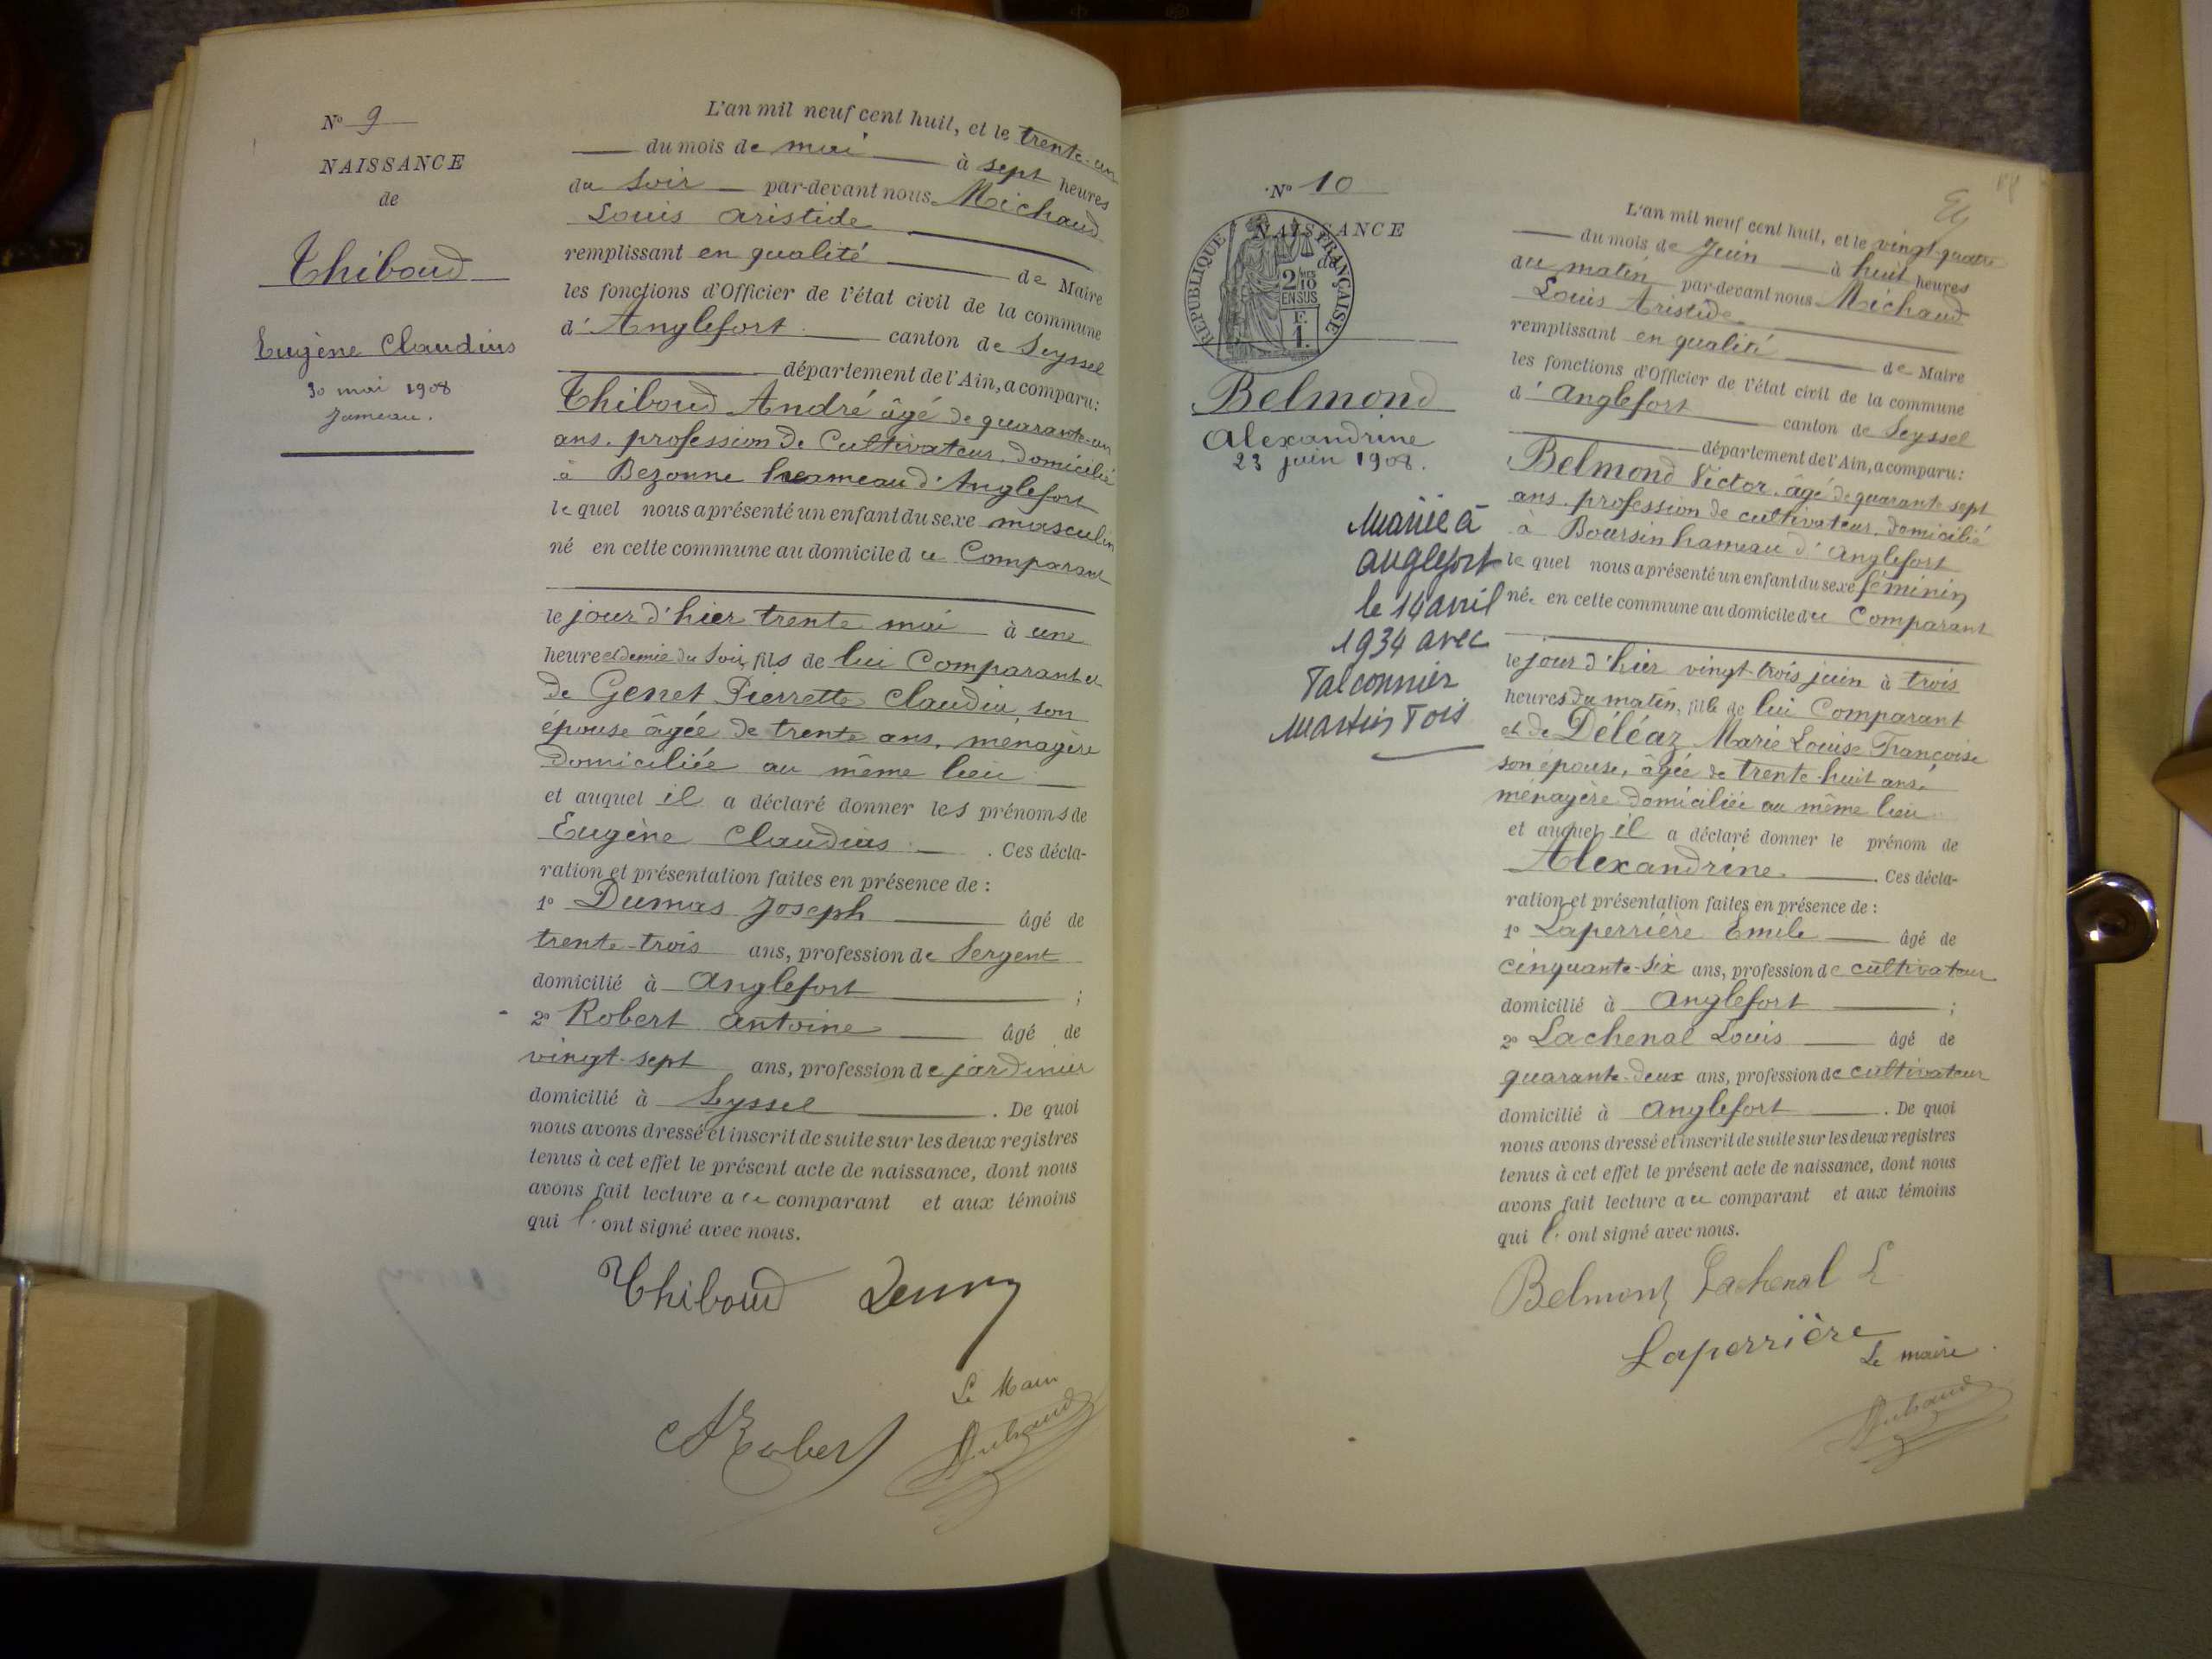 N° 9
NAISSANCE
de
Thiboud
Eugène Claudius
30 mai 1908
Jumeau.
L'an mil neuf cent huit, et le trente-un
du mois de mai à sept heures
du soir par-devant nous Michaud
Louis Aristide
remplissant en qualité de Maire
les fonctions d'Officier de l'état civil de la commune
d'Anglefort canton de Seyssel
département de l'Ain, a comparu:
Thiboud André âgé de quarante-un
ans. profession de Cultivateur. domicilié
à Bezonne hameau d'Anglefort
lequel nous a présenté un enfant du sexe masculin
né en cette commune au domicile du Comparant
le jour d'hier trente mai à une
heure et demie du soir, fils de lui Comparant et
de Genet Pierrette Claudia, son
épouse âgée de trente ans, ménagère
domiciliée au même lieu
et auquel il a déclaré donner les prénoms de
Eugène Claudius. Ces décla-
ration et présentation faites en présence de :
1° Dumas Joseph âgé de
trente-trois ans, profession de Sergent
domicilié à Anglefort ;
2° Robert Antoine âgé de
vingt-sept ans, profession de jardinier
domicilié à Seyssel . De quoi
nous avons dressé et inscrit de suite sur les deux registres
tenus à cet effet le présent acte de naissance, dont nous
avons fait lecture au comparant et aux témoins
qui l'ont signé avec nous.
Thiboud
Le Maire
ARobert
N° 10
NAISSANCE
de
RÉPUBLIQUE FRANÇAISE
2/10
EN SUS
F.
1.
Belmond
Alexandrine
23 juin 1908.
Mariée à
Anglefort
le 14 avril
1934 avec
Falconnier
L'an mil neuf cent huit, et le vingt-quatre
du mois de Juin à huit heures
du matin par-devant nous Michaud
Louis Aristide
remplissant en qualité de Maire
les fonctions d'Officier de l'état civil de la commune
d'Anglefort canton de Seyssel
département de l'Ain, a comparu:
Belmond Victor, âgé de quarante sept
ans. profession de cultivateur. domicilié
à Boursin hameau d'Anglefort
lequel nous a présenté un enfant du sexe féminin
née en cette commune au domicile du Comparant
le jour d'hier vingt-trois juin à trois
heures du matin, fille de lui Comparant
et de Déléaz Marie Louise Françoise
son épouse, âgée de trente-huit ans,
ménagère domiciliée au même lieu
et auquel il a déclaré donner le prénom de
Alexandrine. Ces décla-
ration et présentation faites en présence de :
1° Laperrière Emile âgé de
cinquante-six ans, profession de cultivateur
domicilié à Anglefort ;
2° Lachenal Louis âgé de
quarante-deux ans, profession de cultivateur
domicilié à Anglefort . De quoi
nous avons dressé et inscrit de suite sur les deux registres
tenus à cet effet le présent acte de naissance, dont nous
avons fait lecture au comparant et aux témoins
qui l'ont signé avec nous.
Belmont Lachenal L
Laperrière
Le maire